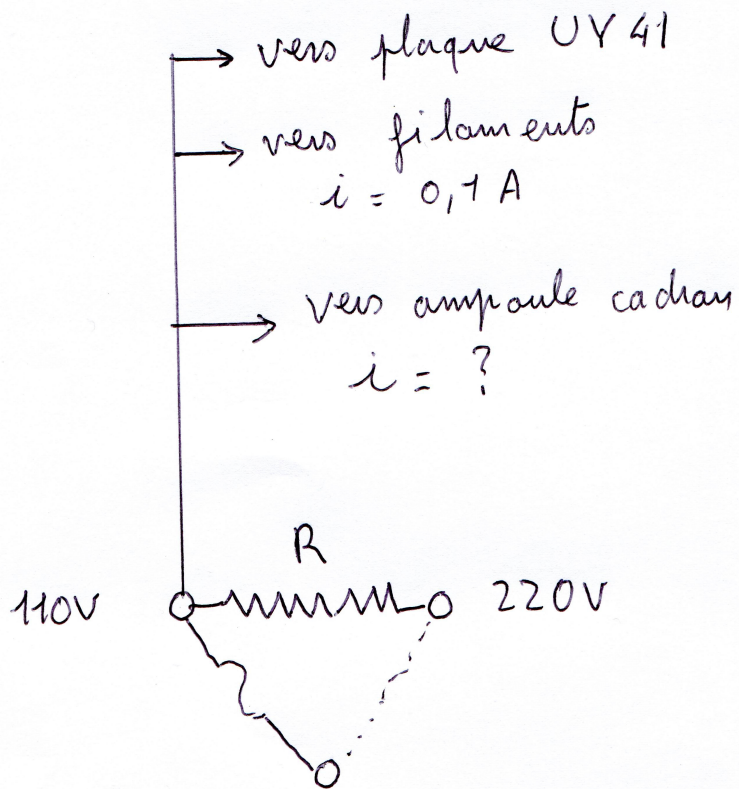 vers plaque UY 41
vers filaments
i = 0,1 A
vers ampoule cadran
i = ?
R
110V
220V